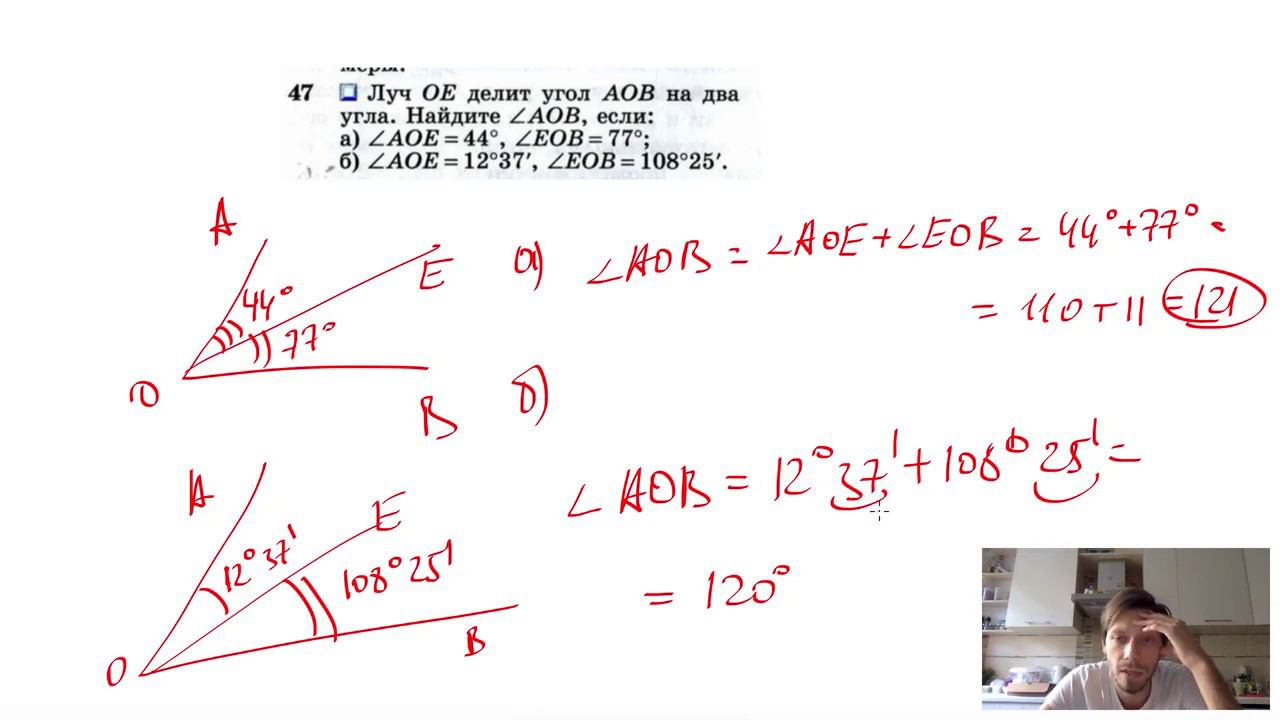 меры.
47 Луч OE делит угол AOB на два
угла. Найдите ∠AOB, если:
а) ∠AOE = 44°, ∠EOB = 77°;
б) ∠AOE = 12°37′, ∠EOB = 108°25′.
A
E
44°
77°
O
B
а) ∠AOB = ∠AOE + ∠EOB = 44° + 77° =
= 110 + 11 = 121
б)
∠AOB = 12°37′ + 108°25′ =
= 120°
A
E
12°37′
108°25′
O
B